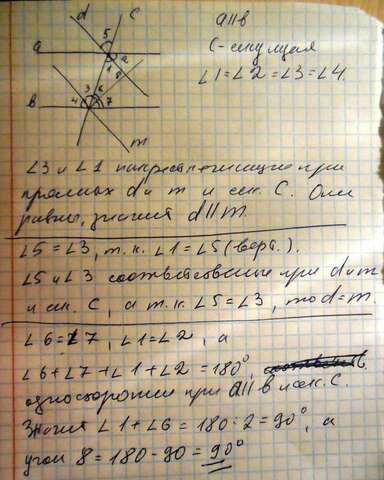 d
C
a
5
1 2
8
3 6
4 7
в
m
a||в
С-секущая
∠1=∠2=∠3=∠4.
∠3 и ∠1 накрест лежащие при
прямых d и m и сек. С. Они
равны, значит d||m.
∠5=∠3, т.к. ∠1=∠5 (верт.).
∠5 и ∠3 соответственные при d и m
и сек. С, а т.к. ∠5=∠3, то d=m.
∠6=∠7, ∠1=∠2, а
∠6+∠7+∠1+∠2=180°,
односторонние при a||в и сек. С.
Значит ∠1+∠6=180:2=90°, а
угол 8=180-90=90°